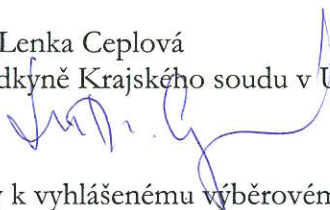 Lenka Ceplová
dkyně Krajského soudu v Ú
k vyhlášenému výběrovém